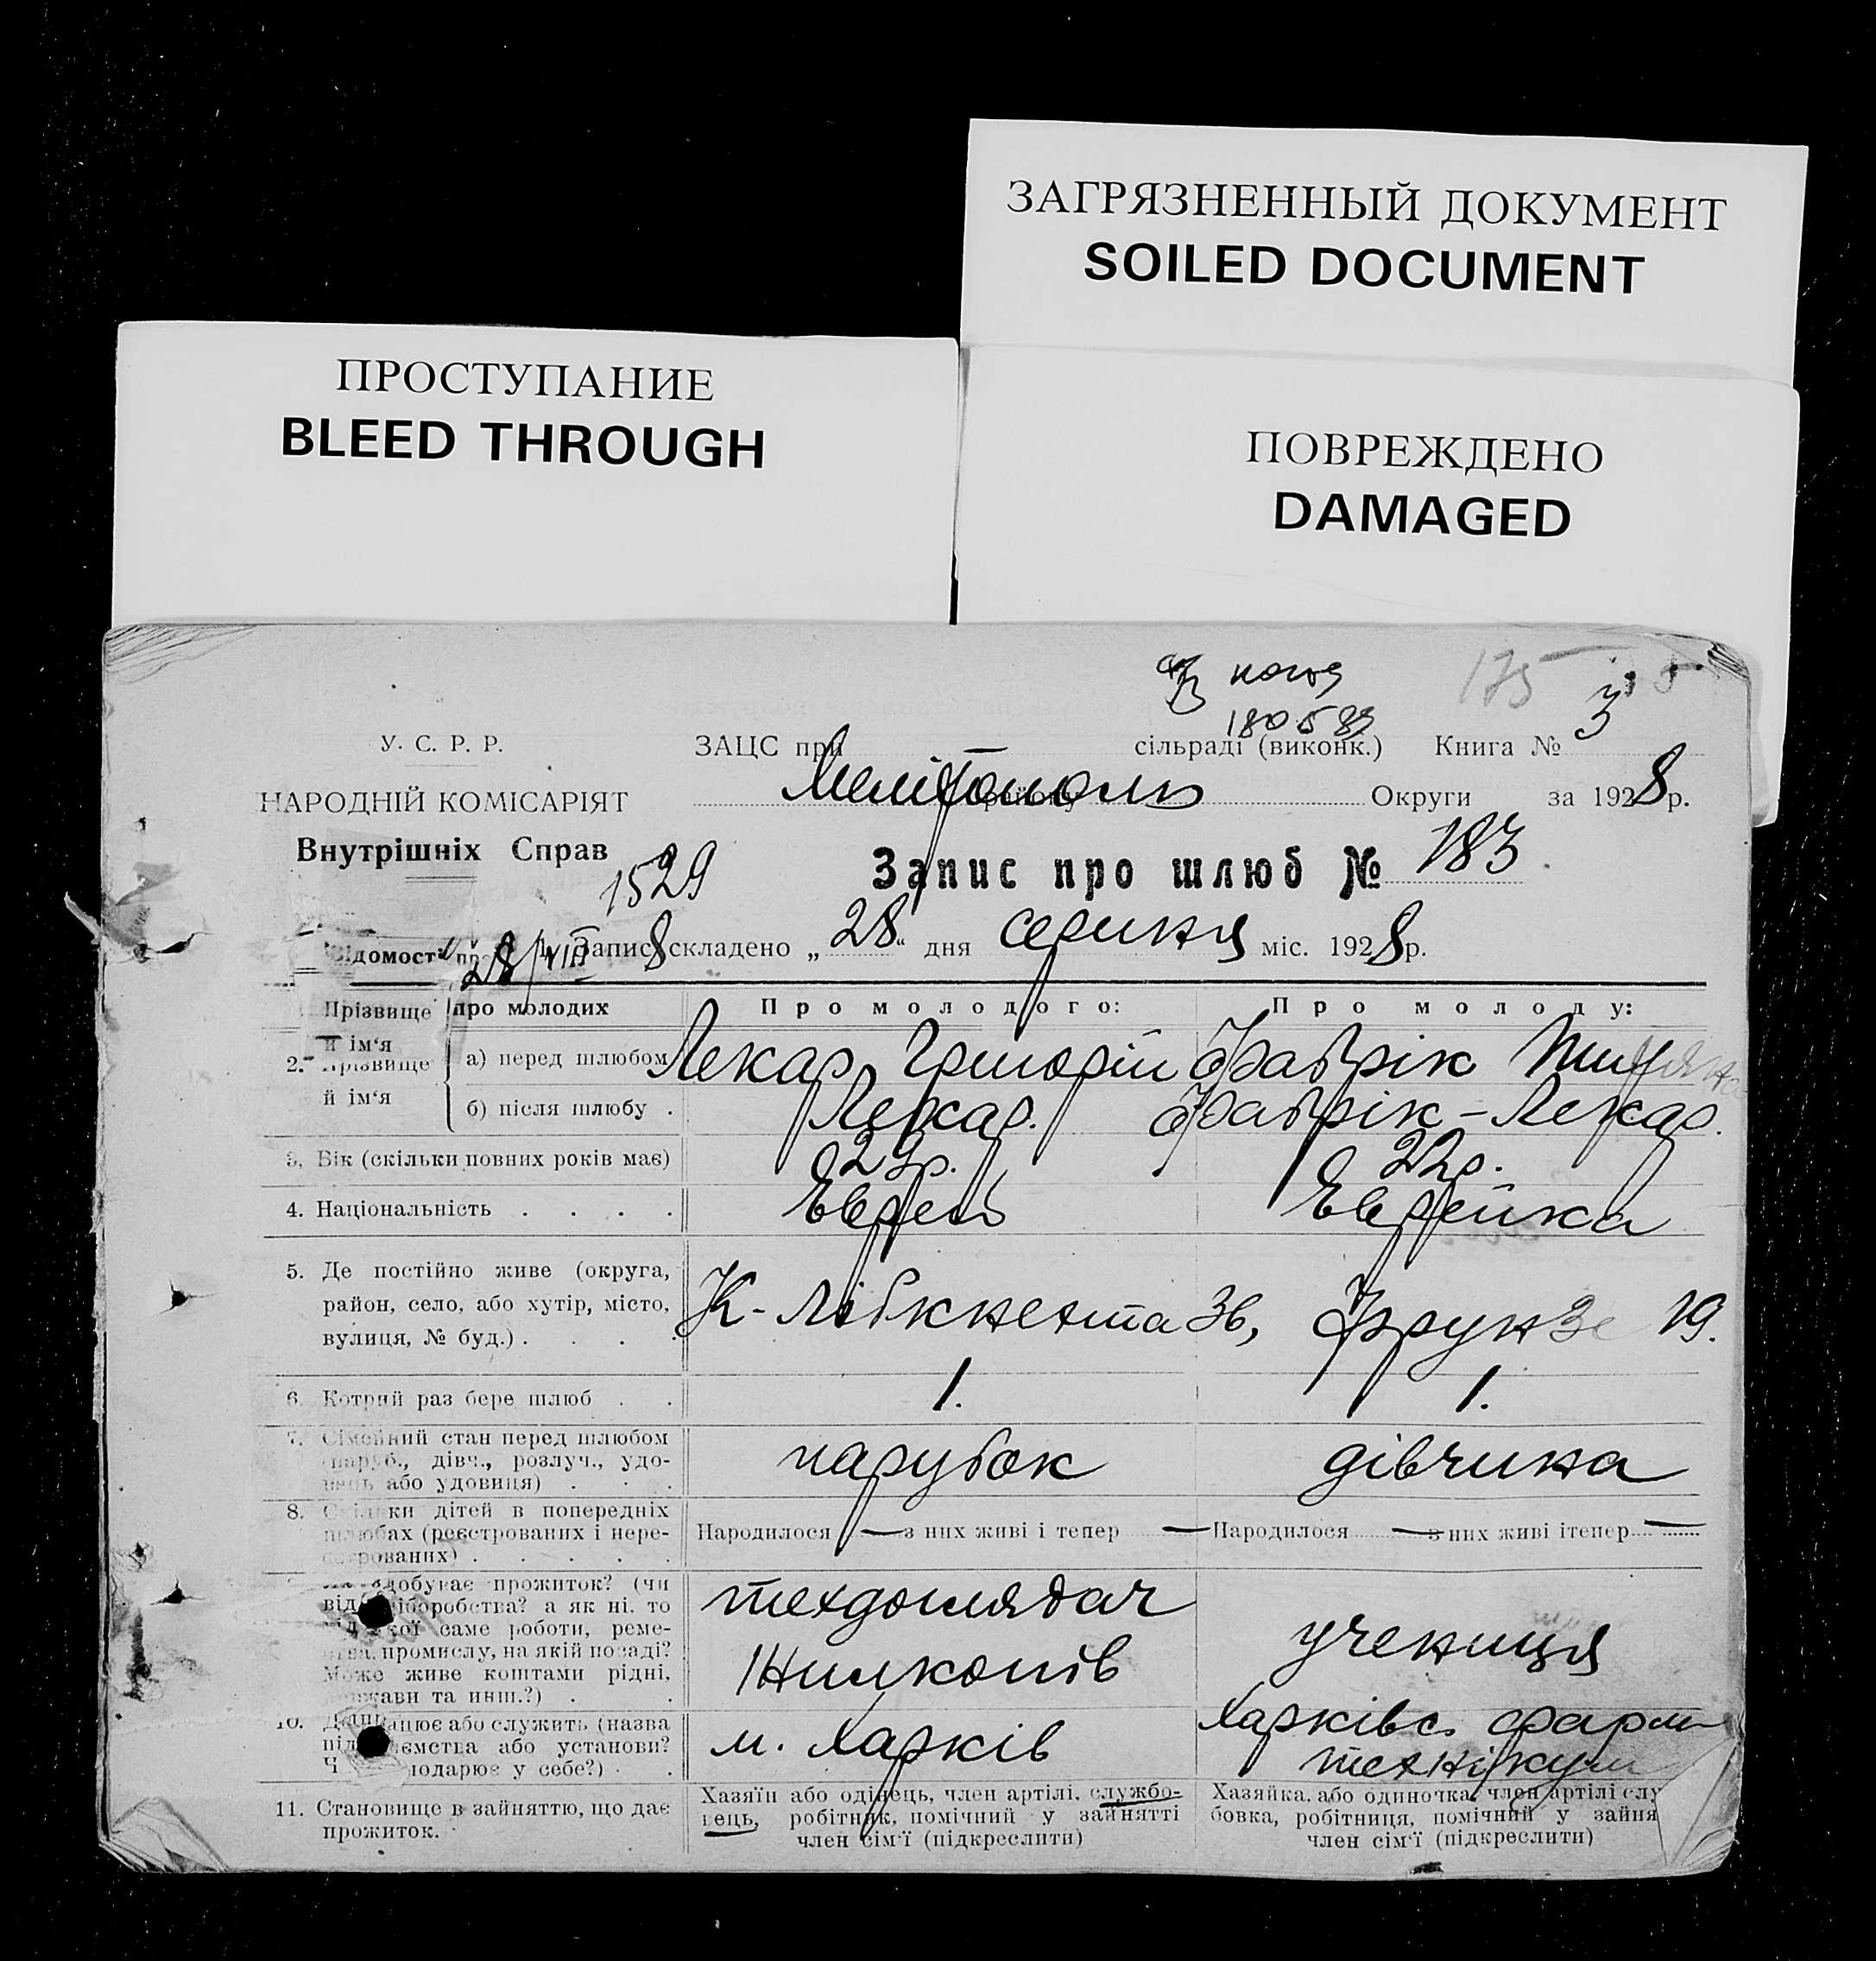 ЗАГРЯЗНЕННЫЙ ДОКУМЕНТ
SOILED DOCUMENT
ПРОСТУПАНИЕ
BLEED THROUGH
ПОВРЕЖДЕНО
DAMAGED
175 3
180583
У. С. Р. Р.
ЗАЦС при — сільраді (виконк.) Книга №
НАРОДНІЙ КОМІСАРІЯТ
Мелітополь району Округи за 1928 р.
Внутрішніх Справ
1529
Запис про шлюб № 183
Відомості
28/VIII 8
1. Запис складено „28“ дня серпня міс. 1928 р.
Прізвище й ім‘я
про молодих
Про молодого:
Про молоду:
2. Прізвище й ім‘я
а) перед шлюбом
Лекар Григорій
Фабрік
б) після шлюбу .
Лекар.
Фабрік-Лекар.
3. Вік (скільки повних років має)
23р.
22р.
4. Національність . . . .
Еврей
Еврейка
5. Де постійно живе (округа,
район, село, або хутір, місто,
вулиця, № буд.) . . . .
К-Лібкнехта 36,
Фрунзе 19.
6. Котрий раз бере шлюб . .
1.
1.
7. Сімейний стан перед шлюбом
(паруб., дівч., розлуч., удо-
вець або удовиця) . . .
парубок
дівчина
8. Скільки дітей в попередніх
шлюбах (реєстрованих і нере-
єстрованих) . . . . .
Народилося — з них живі і тепер —
Народилося — з них живі і тепер —
здобуває прожиток? (чи
від хліборобства? а як ні, то
від якої саме роботи, реме-
ства, промислу, на якій посаді?
Може живе коштами рідні,
держави та инш.?) . .
техдоглядач
учениця
10. Де працює або служить (назва
підприємства або установи?
Чи господарює у себе?) . .
м. Харків
Харківс. фарм
технікум
11. Становище в зайняттю, що дає
прожиток.
Хазяїн або одінець, член артілі, службо-
вець, робітник, помічний у зайнятті
член сім‘ї (підкреслити)
Хазяйка, або одиночка, член артілі слу
бовка, робітниця, помічний у зайня
член сім‘ї (підкреслити)